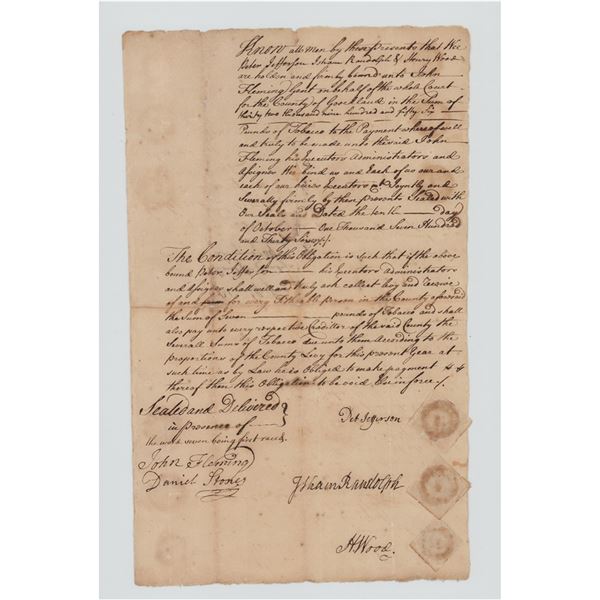 Know all men by these presents that Wee
Peter Jefferson Isham Randolph & Henry Wood
are holden and firmly bound unto John
Fleming Gent on behalf of the whole Court
for the County of Goochland in the Sum of
thirty two thousand nine hundred and fifty Six
Pounds of Tobacco to the Payment whereof well
and truly to be made unto the said John
Fleming his Executors Administrators and
Assignes We bind us and Each of us our and
each of our heires Executors &c Joyntly and
Severally firmly by these presents Sealed with
Our Seals and Dated the tenth day
of October One Thousand Seven Hundred
and Thirty Seven
The Condition of this Obligation is Such that if the above
bound Peter Jefferson his Executors Administrators
and Assignes shall well and truly ask collect levy and Receive
of and from every Tithable Person in the County aforesaid
the Sum of Seven pounds of Tobacco and shall
also pay unto every respective Creditor of the said County the
Severall Sums of Tobacco due unto them According to the
proportions of the County Levy for this present Year at
such time as by Law he is Obliged to make payment
thereof then this Obligation to be void Else in force
Sealed and Delivered
in presence of
the word seven being first raced.
John Fleming
Daniel Stoner
Pet Jefferson
Isham Randolph
H Wood.